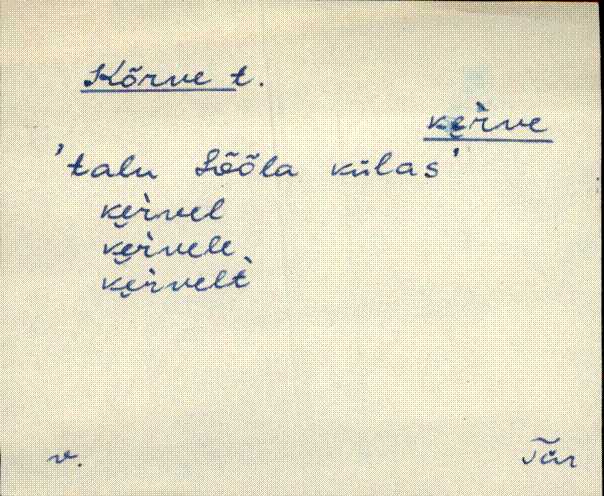 Kõrve t.
ke̮r̀ve
'talu Sõõla külas'
ke̮r̀vel
ke̮r̀vele
ke̮r̀velt̀
v.